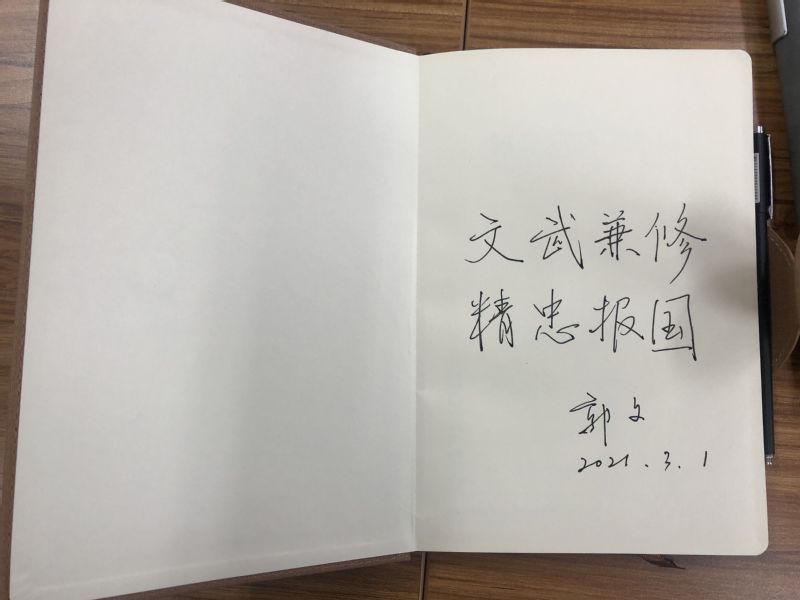 文武兼修
精忠报国
郭文
2021.3.1